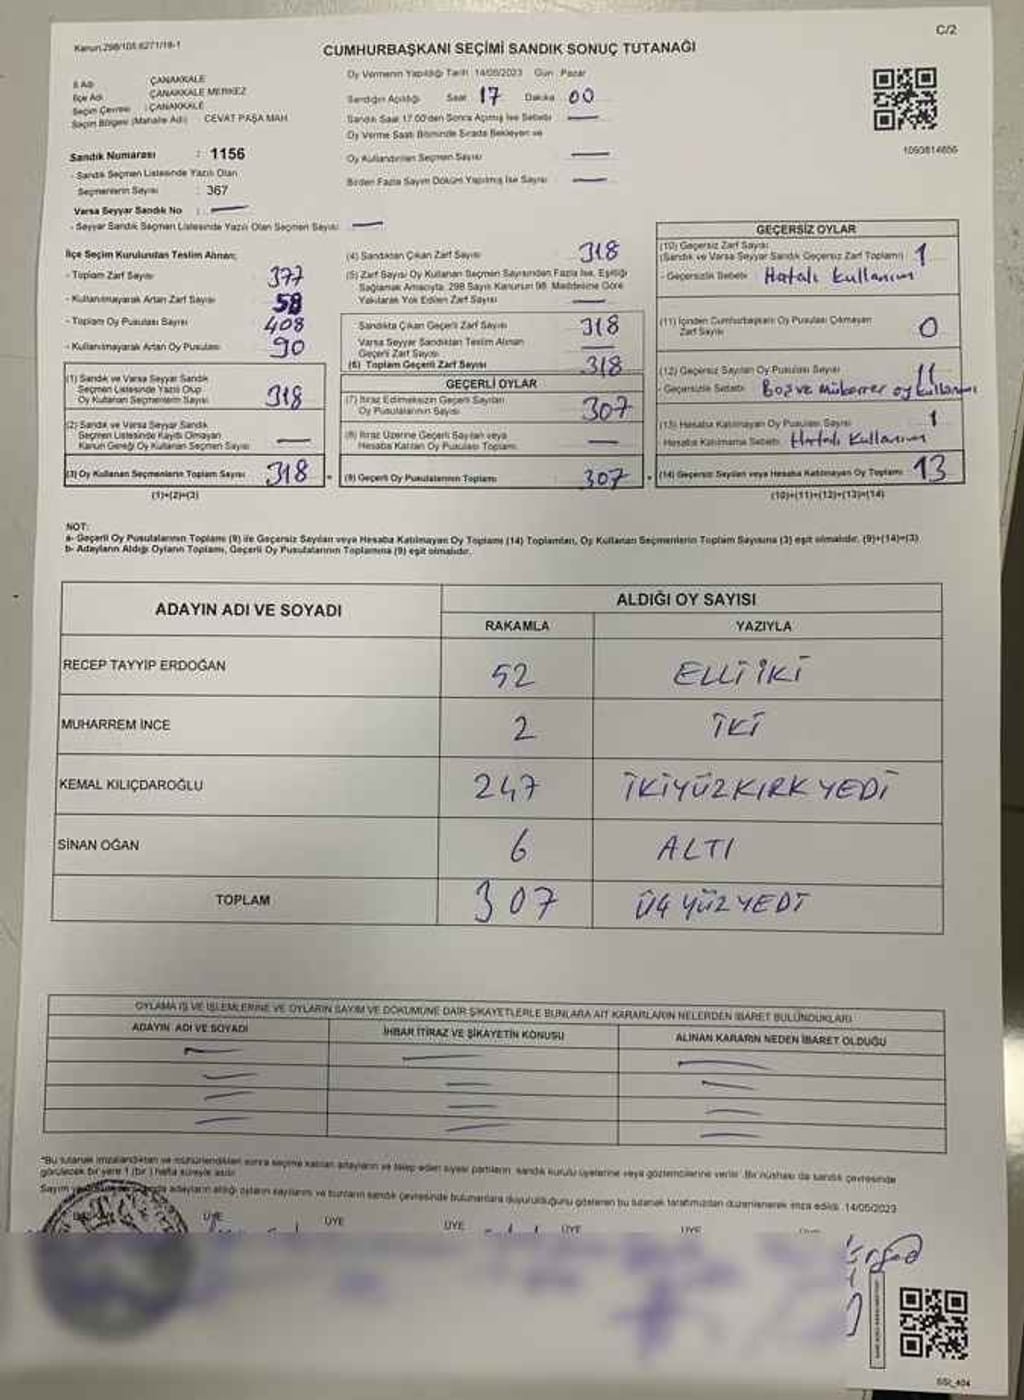 Kanun.298/105.6271/19-1
C/2
CUMHURBAŞKANI SEÇİMİ SANDIK SONUÇ TUTANAĞI
İl Adı ÇANAKKALE
İlçe Adı ÇANAKKALE MERKEZ
Seçim Çevresi : ÇANAKKALE
Seçim Bölgesi (Mahalle Adı) : CEVAT PAŞA MAH.
Sandık Numarası : 1156
- Sandık Seçmen Listesinde Yazılı Olan
Seçmenlerin Sayısı : 367
Varsa Seyyar Sandık No : —
- Seyyar Sandık Seçmen Listesinde Yazılı Olan Seçmen Sayısı —
Oy Vermenin Yapıldığı Tarih 14/05/2023 Gün Pazar
Sandığın Açıldığı Saat 17 Dakika 00
Sandık Saat 17.00'den Sonra Açılmış İse Sebebi —
Oy Verme Saati Bitiminde Sırada Bekleyen ve
Oy Kullandırılan Seçmen Sayısı —
Birden Fazla Sayım Döküm Yapılmış İse Sayısı —
1093814656
İlçe Seçim Kurulundan Teslim Alınan;
- Toplam Zarf Sayısı 377
- Kullanılmayarak Artan Zarf Sayısı 58
- Toplam Oy Pusulası Sayısı 408
- Kullanılmayarak Artan Oy Pusulası 90
(1) Sandık ve Varsa Seyyar Sandık
Seçmen Listesinde Yazılı Olup
Oy Kullanan Seçmenlerin Sayısı 318
(2) Sandık ve Varsa Seyyar Sandık
Seçmen Listesinde Kayıtlı Olmayan
Kanun Gereği Oy Kullanan Seçmen Sayısı —
(3) Oy Kullanan Seçmenlerin Toplam Sayısı 318
(1)+(2)=(3)
(4) Sandıktan Çıkan Zarf Sayısı 318
(5) Zarf Sayısı Oy Kullanan Seçmen Sayısından Fazla İse, Eşitliği
Sağlamak Amacıyla, 298 Sayılı Kanunun 98. Maddesine Göre
Yakılarak Yok Edilen Zarf Sayısı —
Sandıkta Çıkan Geçerli Zarf Sayısı 318
Varsa Seyyar Sandıktan Teslim Alınan
Geçerli Zarf Sayısı —
(6) Toplam Geçerli Zarf Sayısı 318
GEÇERLİ OYLAR
(7) İtiraz Edilmeksizin Geçerli Sayılan
Oy Pusulalarının Sayısı 307
(8) İtiraz Üzerine Geçerli Sayılan veya
Hesaba Katılan Oy Pusulası Toplamı —
(9) Geçerli Oy Pusulalarının Toplamı 307
GEÇERSİZ OYLAR
(10) Geçersiz Zarf Sayısı
(Sandık ve Varsa Seyyar Sandık Geçersiz Zarf Toplamı) 1
- Geçersizlik Sebebi Hatalı kullanım
(11) İçinden Cumhurbaşkanı Oy Pusulası Çıkmayan
Zarf Sayısı 0
(12) Geçersiz Sayılan Oy Pusulası Sayısı 11
- Geçersizlik Sebebi Boş ve mükerrer oy kullanımı
(13) Hesaba Katılmayan Oy Pusulası Sayısı 1
Hesaba Katılmama Sebebi Hatalı Kullanım
(14) Geçersiz Sayılan veya Hesaba Katılmayan Oy Toplamı 13
(10)+(11)+(12)+(13)=(14)
NOT:
a- Geçerli Oy Pusulalarının Toplamı (9) ile Geçersiz Sayılan veya Hesaba Katılmayan Oy Toplamı (14) Toplamları, Oy Kullanan Seçmenlerin Toplam Sayısına (3) eşit olmalıdır. (9)+(14)=(3)
b- Adayların Aldığı Oyların Toplamı, Geçerli Oy Pusulalarının Toplamına (9) eşit olmalıdır.
ADAYIN ADI VE SOYADI
ALDIĞI OY SAYISI
RAKAMLA YAZIYLA
RECEP TAYYİP ERDOĞAN 52 ELLİ İKİ
MUHARREM İNCE 2 İKİ
KEMAL KILIÇDAROĞLU 247 İKİYÜZKIRKYEDİ
SİNAN OĞAN 6 ALTI
TOPLAM 307 ÜÇ YÜZ YEDİ
OYLAMA İŞ VE İŞLEMLERİNE VE OYLARIN SAYIM VE DÖKÜMÜNE DAİR ŞİKAYETLERLE BUNLARA AİT KARARLARIN NELERDEN İBARET BULUNDUKLARI
ADAYIN ADI VE SOYADI İHBAR İTİRAZ VE ŞİKAYETİN KONUSU ALINAN KARARIN NEDEN İBARET OLDUĞU
*Bu tutanak imzalandıktan ve mühürlendikten sonra seçime katılan adayların ve talep eden siyasi partilerin sandık kurulu üyelerine veya gözlemcilerine verilir. Bir nüshası da sandık çevresinde
görülecek bir yere 1 (bir) hafta süreyle asılır.
Sayım adayların aldığı oyların sayılarını ve bunların sandık çevresinde bulunanlara duyurulduğunu gösteren bu tutanak tarafımızdan düzenlenerek imza edildi. 14/05/2023
ÜYE ÜYE ÜYE ÜYE ÜYE
SSI_404